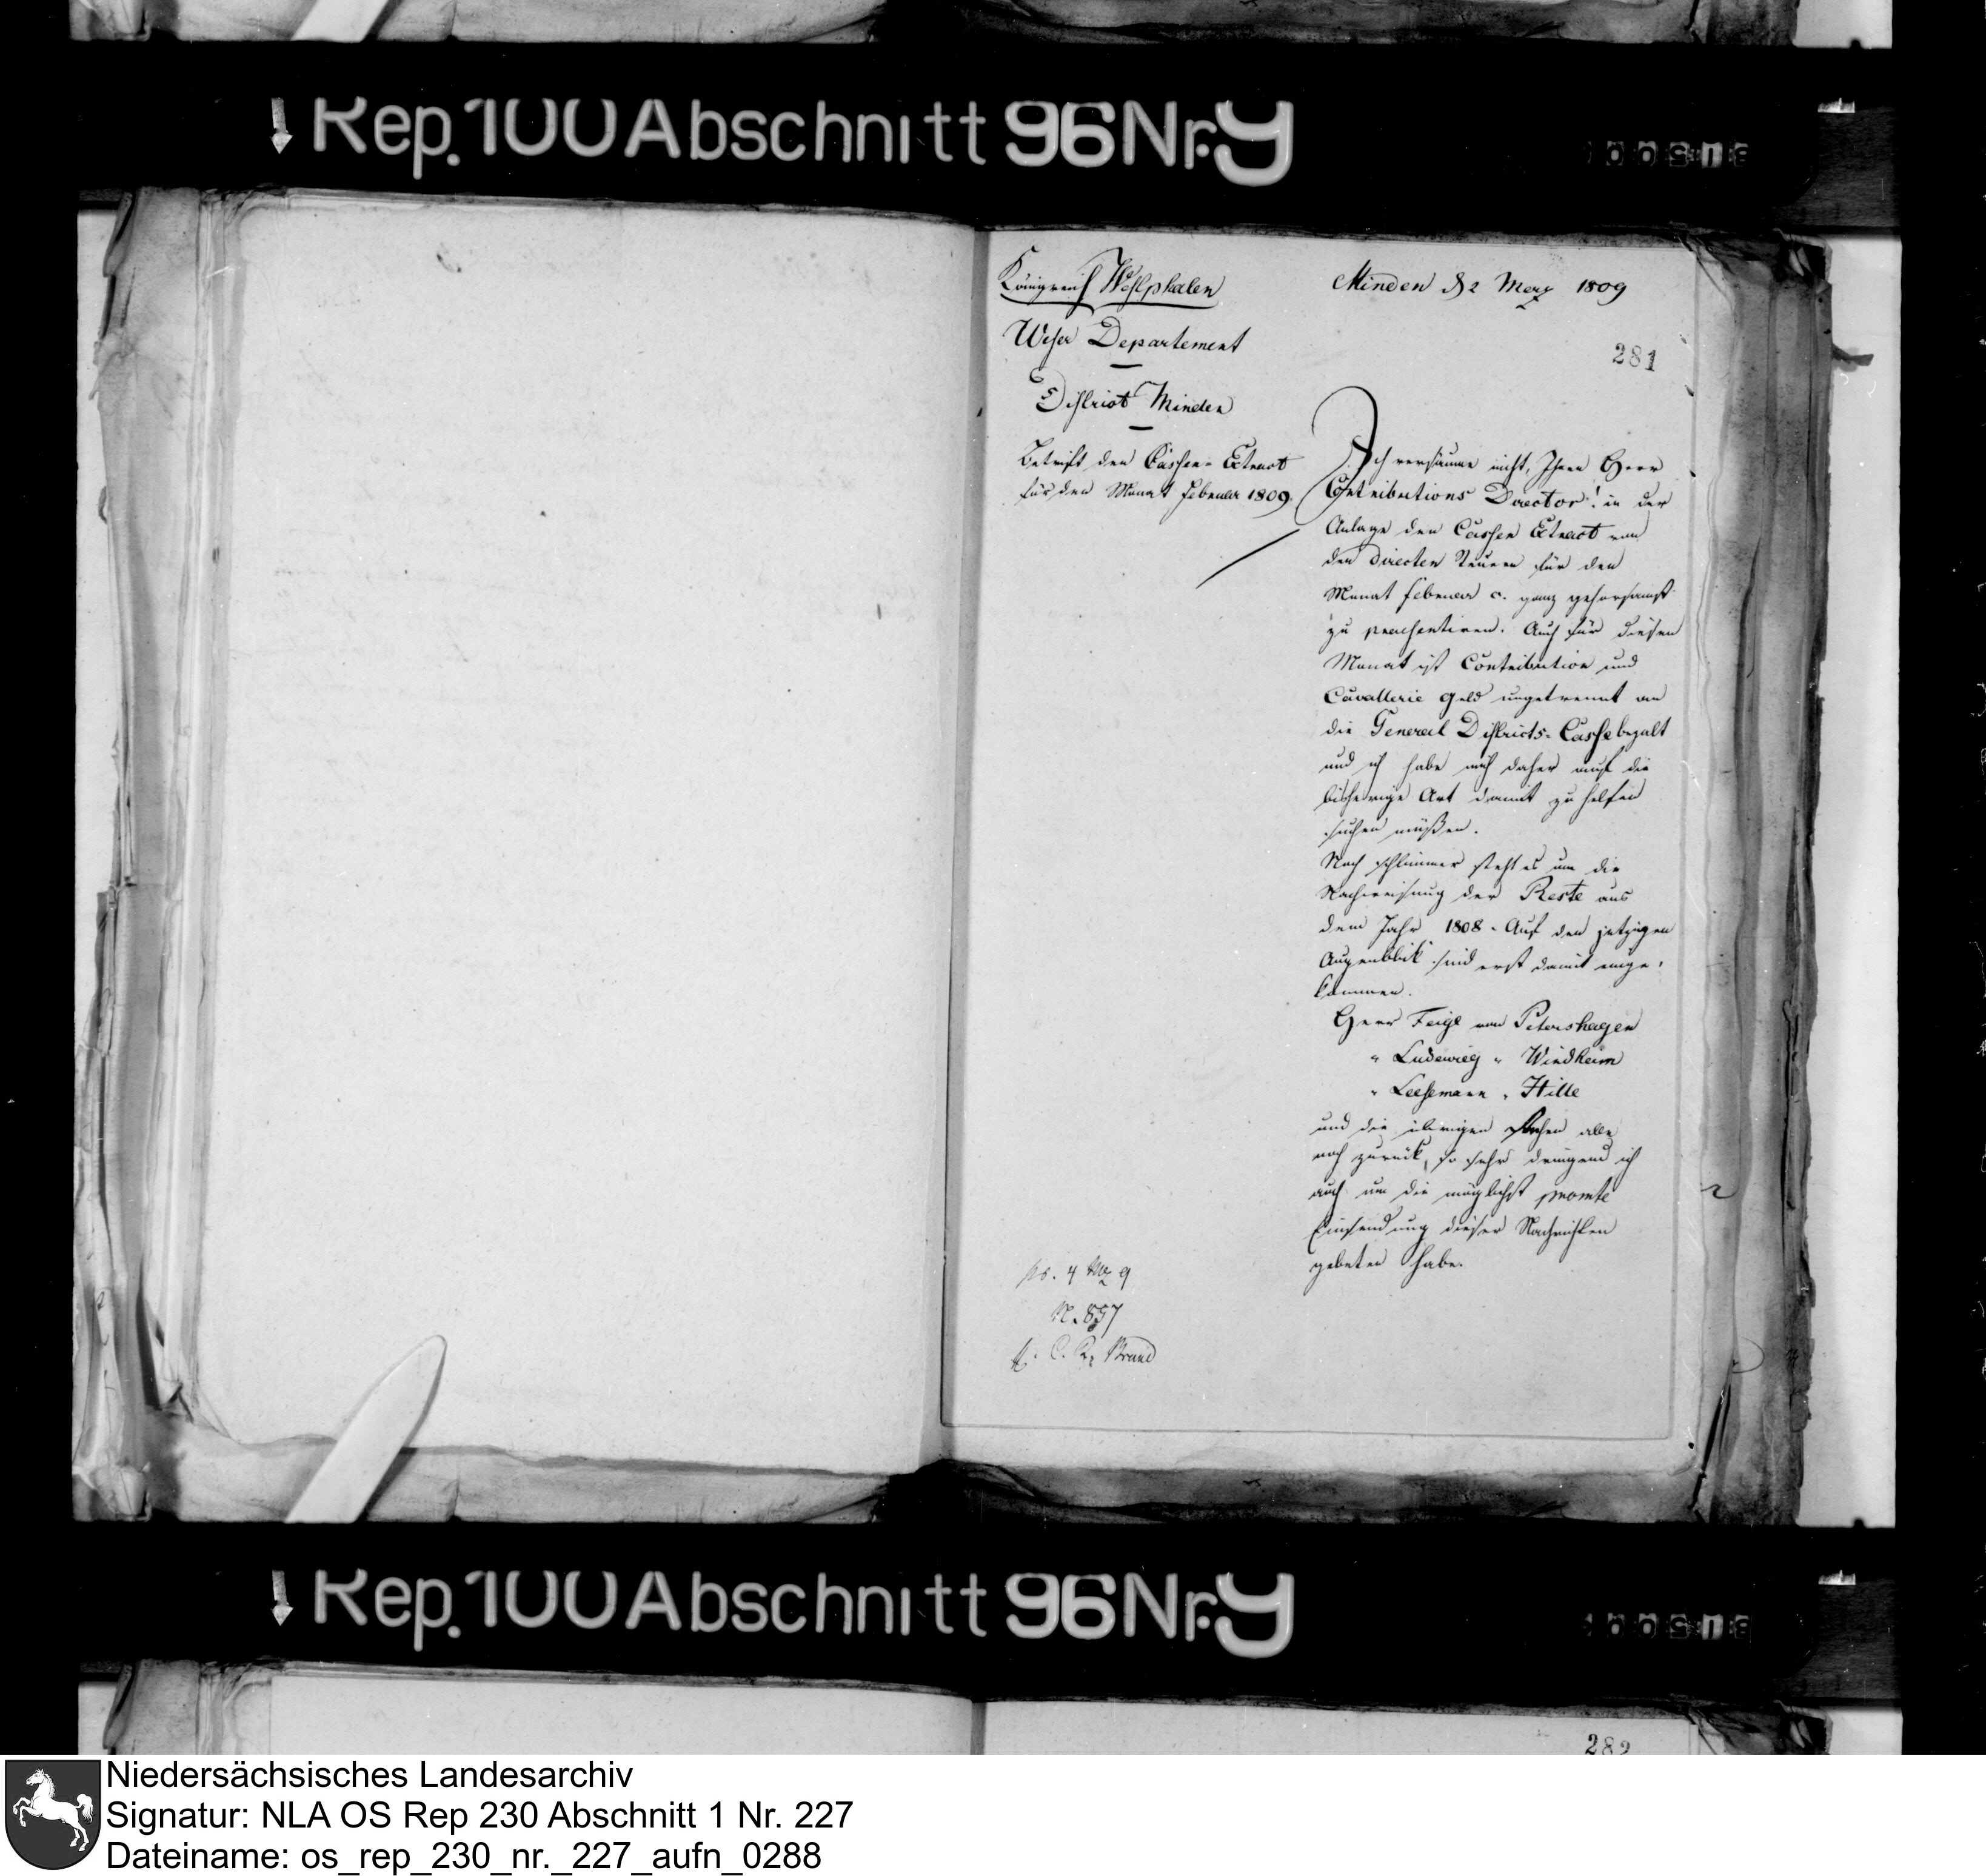 Rep. 100 Abschnitt 96 Nr. 9
Königreich Westphalen
Weser Departement
District Minden
Betrift den Cassen-Extract
für den Monat Februar 1809.
Minden d 2 Merz 1809
281
Ich versäume nicht, Ihnen Herr
Contributions Director! in der
Anlage den Cassen Extract von
den directen Steuern für den
Monat Februar c. ganz gehorsamst
zu praesentiren. Auch für diesen
Monat ist Contribution und
Cavallerie Geld ungetrennt an
die General Districts-Casse bezalt
und ich habe mich daher auf die
bisherige Art damit zu helfen
suchen müßen.
Noch schlimmer steht es um die
Nachweisung der Reste aus
dem Jahr 1808. Auf den jetzigen
Augenblik sind erst damit einge-
kommen.
Herr Feige von Petershagen
" Ludewieg " Windheim
" Leesemann " Hille
und die übrigen stehen alle
noch zurück, so sehr dringend ich
auch um die möglichst promte
Einsendung dieser Nachrichten
gebeten habe.
ps. 4 Mz 9
N. 857
H. C. R. Brand
Rep. 100 Abschnitt 96 Nr. 9
282
Niedersächsisches Landesarchiv
Signatur: NLA OS Rep 230 Abschnitt 1 Nr. 227
Dateiname: os_rep_230_nr._227_aufn_0288